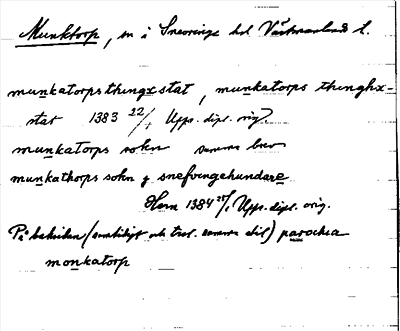 Munktorp, sn i Snevringe hd Västmanlands l.
munkatorpsthingxstat, munkatorps thinghx-
stat 1383 22/1 Upps. dipl. orig.
munkatorps sokn samma brev
munkathorps sokn j snefvingehundare
Hem 1384 25/1 Upps. dipl. orig.
På baksidan (samtidigt och trol. samma stil) parochia
monkatorp